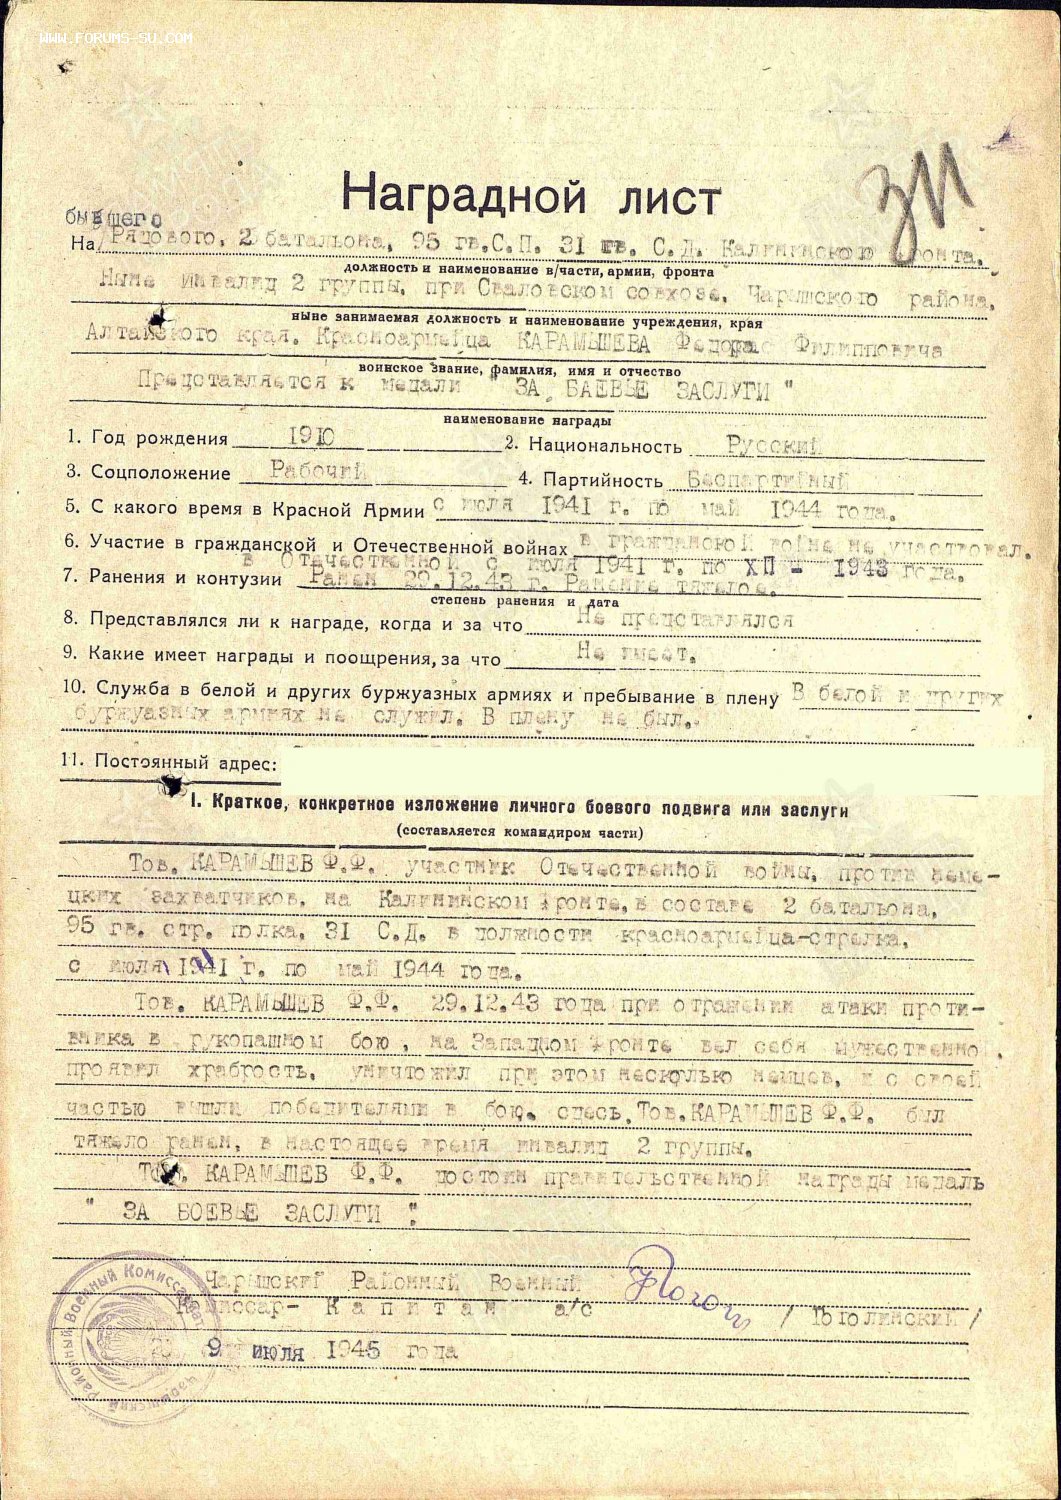 WWW.FORUMS-SU.COM
ЗП
Наградной лист
бывшего
На Рядового, 2 батальона, 95 гв.С.П. 31 гв. С.Д. Калининского фронта.
должность и наименование в/части, армии, фронта
Ныне инвалид 2 группы, при Сваловском совхозе, Чарышского района,
ныне занимаемая должность и наименование учреждения, края
Алтайского края. Красноармейца КАРАМЫШЕВА Федора Филипповича
воинское звание, фамилия, имя и отчество
Представляется к медали " ЗА БАЕВЫЕ ЗАСЛУГИ "
наименование награды
1. Год рождения 1910 2. Национальность Русский
3. Соцположение Рабочий 4. Партийность Беспартийный
5. С какого время в Красной Армии с июля 1941 г. по май 1944 года.
6. Участие в гражданской и Отечественной войнах в гражданской войне не участвовал.
в Отечественной с июля 1941 г. по ХП - 1943 года.
7. Ранения и контузии Ранен 29.12.43 г. Ранение тяжелое.
степень ранения и дата
8. Представлялся ли к награде, когда и за что Не представлялся
9. Какие имеет награды и поощрения, за что Не имеет.
10. Служба в белой и других буржуазных армиях и пребывание в плену В белой и других
буржуазных армиях не служил. В плену не был.
11. Постоянный адрес:
I. Краткое, конкретное изложение личного боевого подвига или заслуги
(составляется командиром части)
Тов. КАРАМЫШЕВ Ф.Ф. участник Отечественной войны, против неме-
цких захватчиков, на Калининском фронте, в составе 2 батальона,
95 гв. стр. полка, 31 С.Д. в должности красноармейца-стрелка,
с июля 1941 г. по май 1944 года.
Тов. КАРАМЫШЕВ Ф.Ф. 29.12.43 года при отражении атаки проти-
вника в рукопашном бою, на Западном фронте вел себя мужественно,
проявил храбрость, уничтожил при этом несколько немцев, и с своей
частью вышли победителями в бою, здесь, Тов. КАРАМЫШЕВ Ф.Ф. был
тяжело ранен, в настоящее время инвалид 2 группы.
Тов. КАРАМЫШЕВ Ф.Ф. достоин правительственной награды медаль
" ЗА БОЕВЫЕ ЗАСЛУГИ ".
Чарышский Районный Военный
Комиссар- Капитан а/с / /
9 июля 1945 года
Чарышский Районный Военный Комиссариат